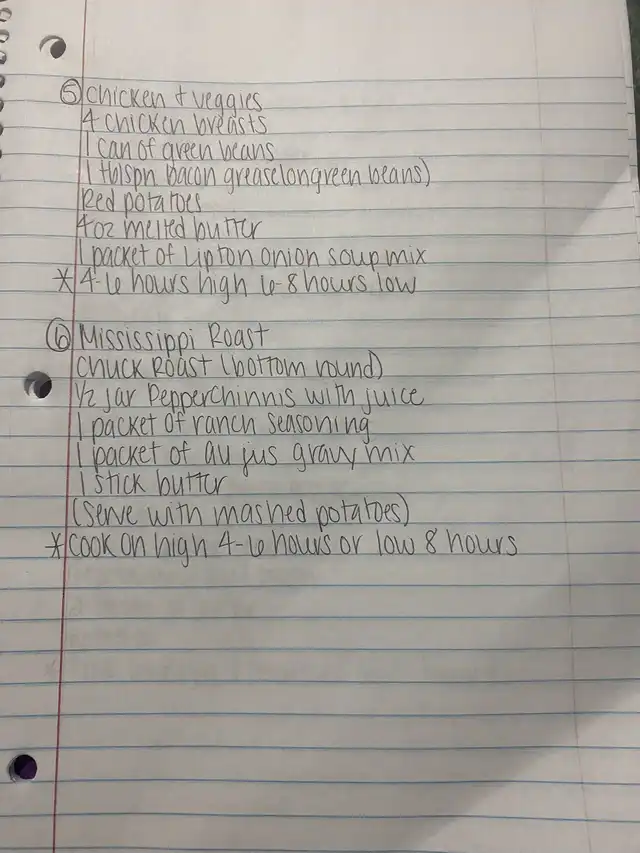 ⑤ Chicken + veggies
4 chicken breasts
1 can of green beans
1 tblspn bacon grease(on green beans)
Red potatoes
4oz melted butter
1 packet of Lipton onion soup mix
* 4-6 hours high 6-8 hours low
⑥ Mississippi Roast
Chuck Roast (bottom round)
1/2 jar Pepperchinnis with juice
1 packet of ranch seasoning
1 packet of au jus gravy mix
1 stick butter
(Serve with mashed potatoes)
* Cook on high 4-6 hours or low 8 hours